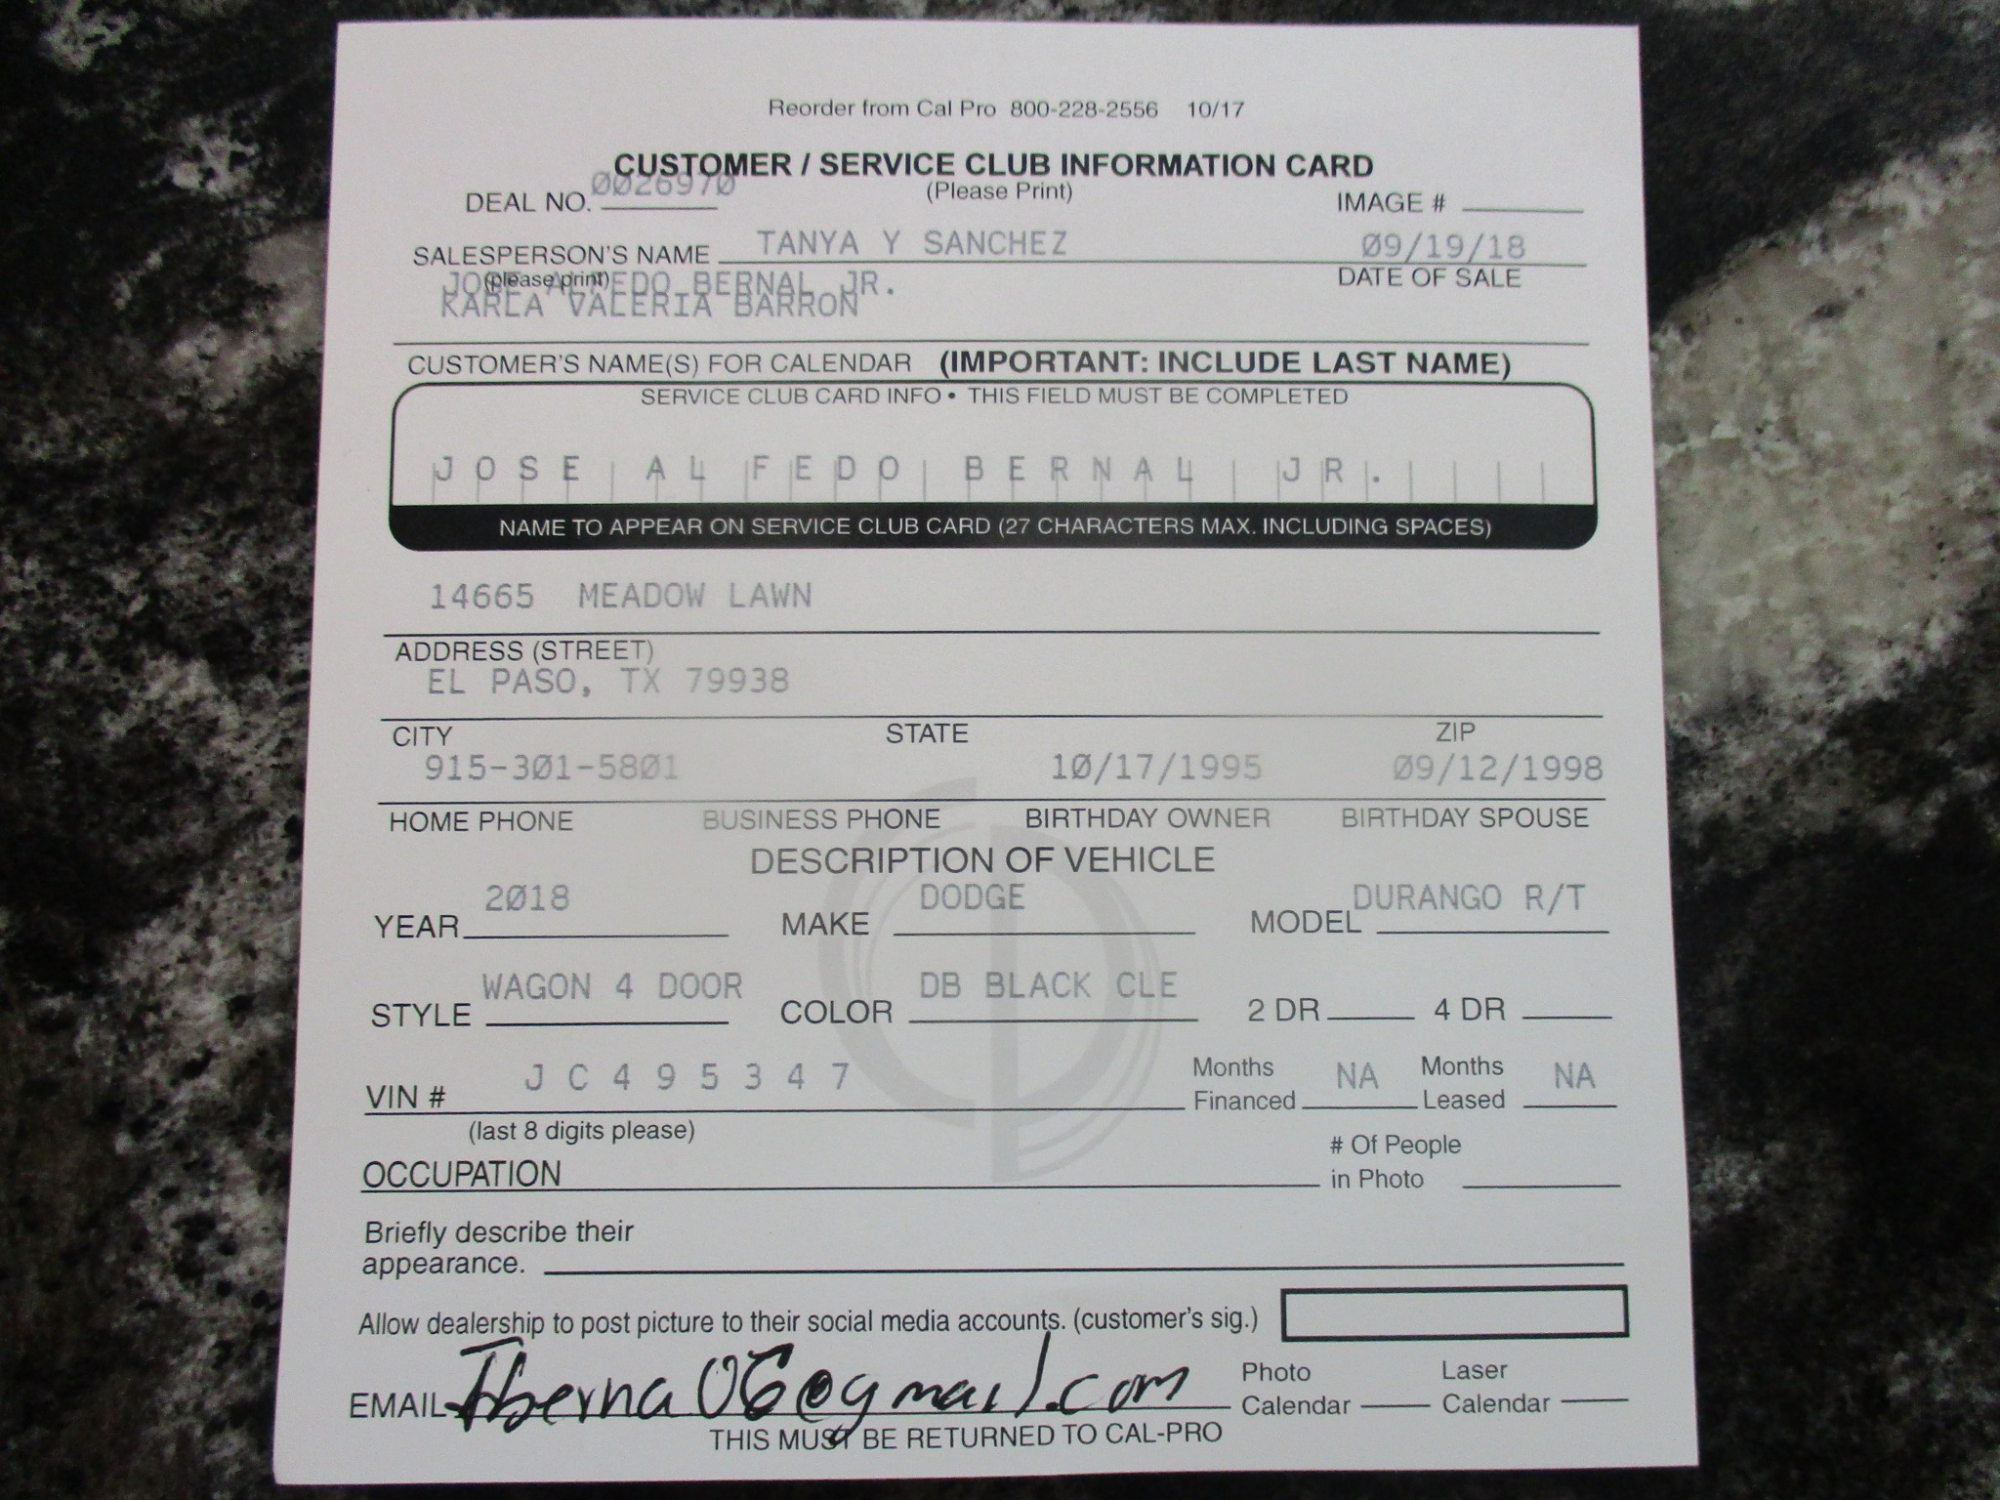 Reorder from Cal Pro 800-228-2556 10/17
CUSTOMER / SERVICE CLUB INFORMATION CARD
DEAL NO. 0026970 (Please Print) IMAGE #
SALESPERSON'S NAME TANYA Y SANCHEZ 09/19/18
(please print) DATE OF SALE
JOSE ALFEDO BERNAL JR.
KARLA VALERIA BARRON
CUSTOMER'S NAME(S) FOR CALENDAR (IMPORTANT: INCLUDE LAST NAME)
SERVICE CLUB CARD INFO • THIS FIELD MUST BE COMPLETED
JOSE AL FEDO BERNAL JR.
NAME TO APPEAR ON SERVICE CLUB CARD (27 CHARACTERS MAX. INCLUDING SPACES)
14665 MEADOW LAWN
ADDRESS (STREET)
EL PASO, TX 79938
CITY STATE ZIP
915-301-5801 10/17/1995 09/12/1998
HOME PHONE BUSINESS PHONE BIRTHDAY OWNER BIRTHDAY SPOUSE
DESCRIPTION OF VEHICLE
YEAR 2018 MAKE DODGE MODEL DURANGO R/T
STYLE WAGON 4 DOOR COLOR DB BLACK CLE 2 DR 4 DR
VIN # JC495347 Months Financed NA Months Leased NA
(last 8 digits please)
OCCUPATION # Of People in Photo
Briefly describe their
appearance.
Allow dealership to post picture to their social media accounts. (customer's sig.)
EMAIL @gmail.com Photo Calendar Laser Calendar
THIS MUST BE RETURNED TO CAL-PRO